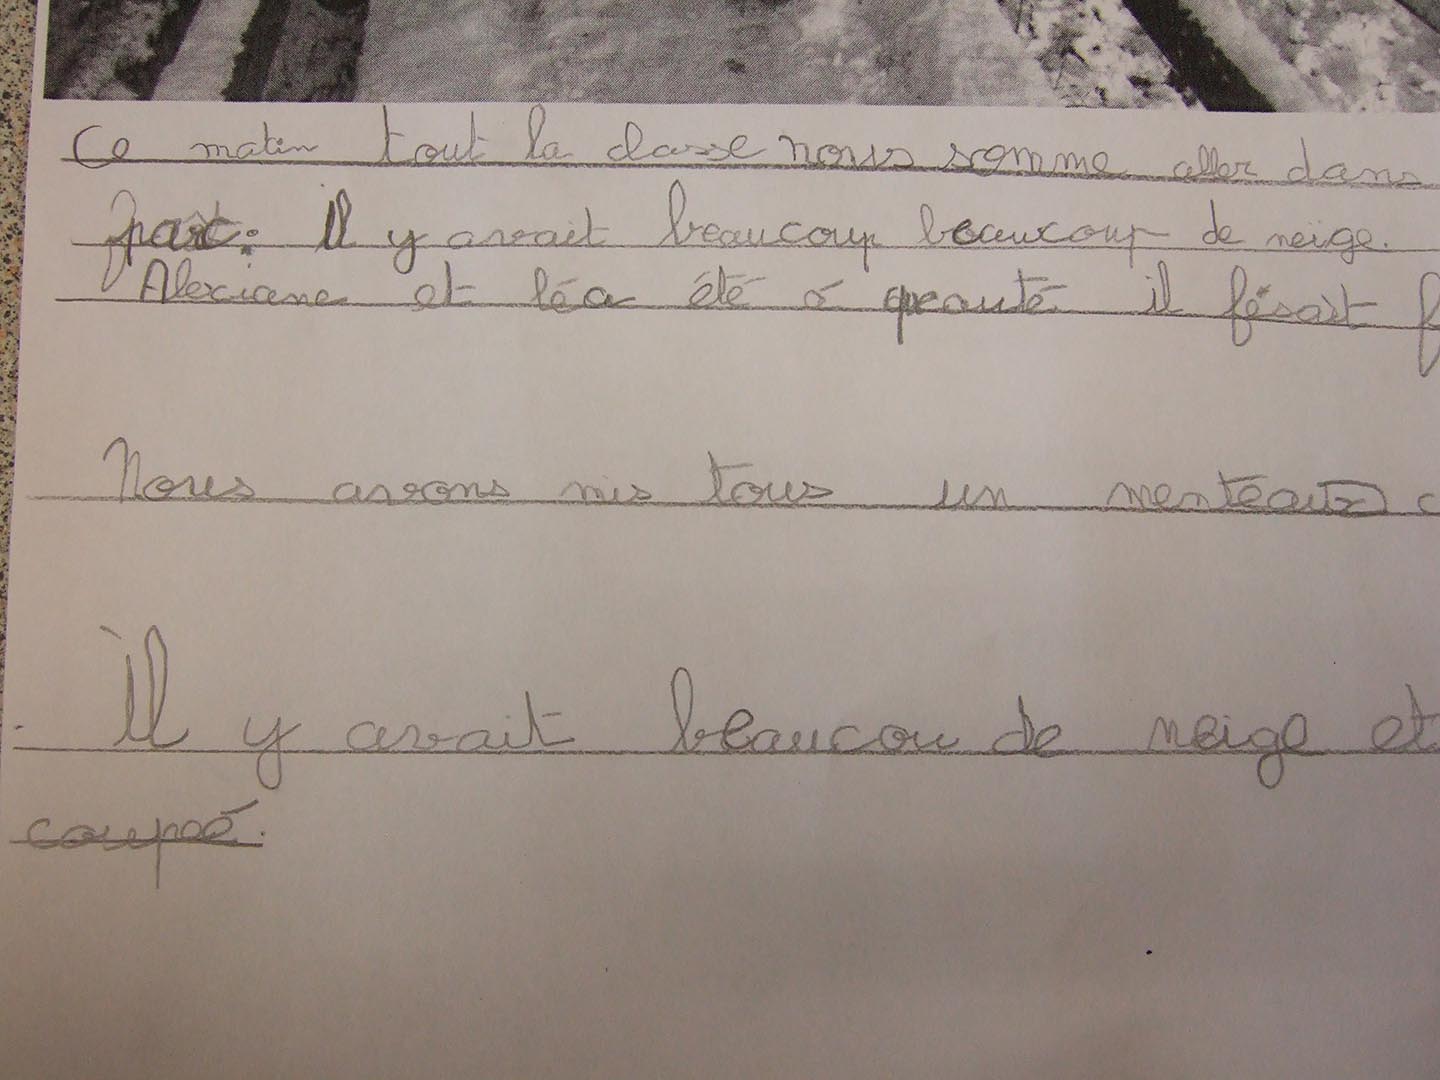 Ce matin tout la classe nous somme aller dans
parc. Il y avait beaucoup beaucoup de neige.
Alexiane et léa été à il fésait f
Nous avons mis tous un menteaux c
Il y avait beaucou de neige et
coupeé.